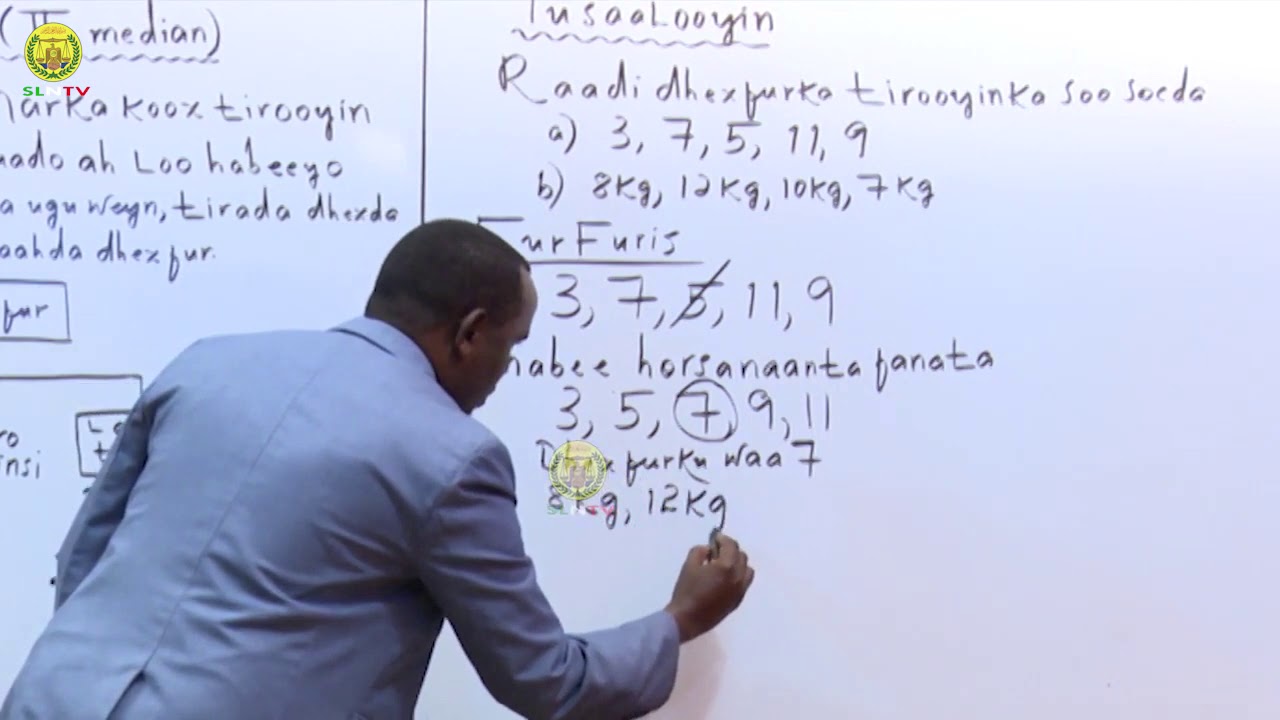 (II median)
SLNTV
marka koox tirooyin
ah Loo habeeyo
a ugu weyn, tirada dhexda
dhexfur.
fur
Tusaalooyin
Raadi dhexfurka tirooyinka soo socda
a) 3, 7, 5, 11, 9
b) 8kg, 12kg, 10kg, 7kg
FurFuris
3, 7, 5, 11, 9
habee horsanaanta fanata
3, 5, 7, 9, 11
furku waa 7
8kg, 12kg
SLNTV